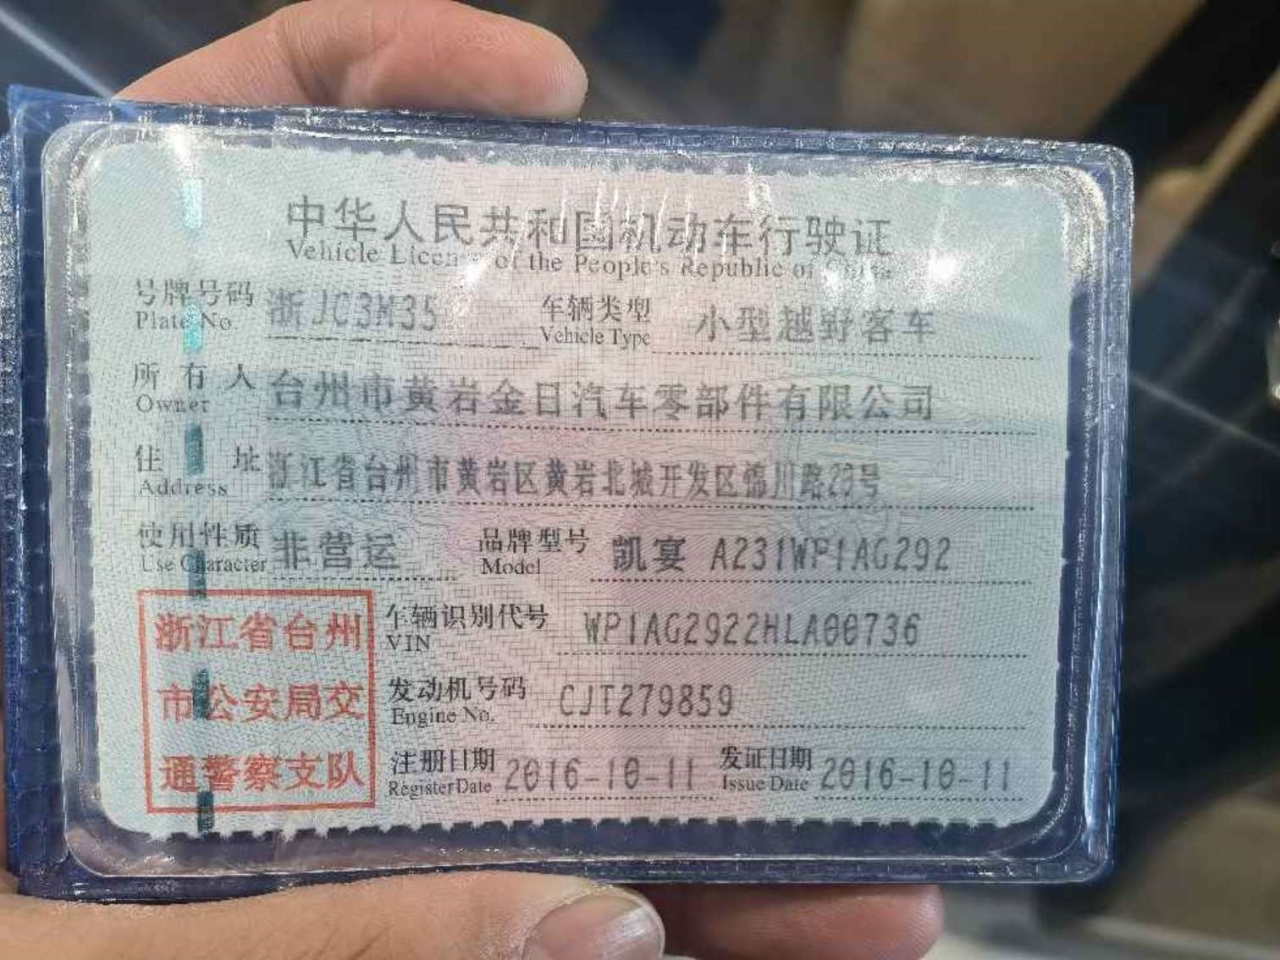 中华人民共和国机动车行驶证
Vehicle License of the People's Republic of China
号牌号码 浙JC3M35 车辆类型 小型越野客车
Plate No. Vehicle Type
所有人 台州市黄岩金日汽车零部件有限公司
Owner
住址 浙江省台州市黄岩区黄岩北城开发区锦川路28号
Address
使用性质 非营运 品牌型号 凯宴 A231WP1AG292
Use Character Model
浙江省台州 车辆识别代号 WP1AG2922HLA00736
VIN
市公安局交 发动机号码 CJT279859
Engine No.
通警察支队 注册日期 2016-10-11 发证日期 2016-10-11
Register Date Issue Date